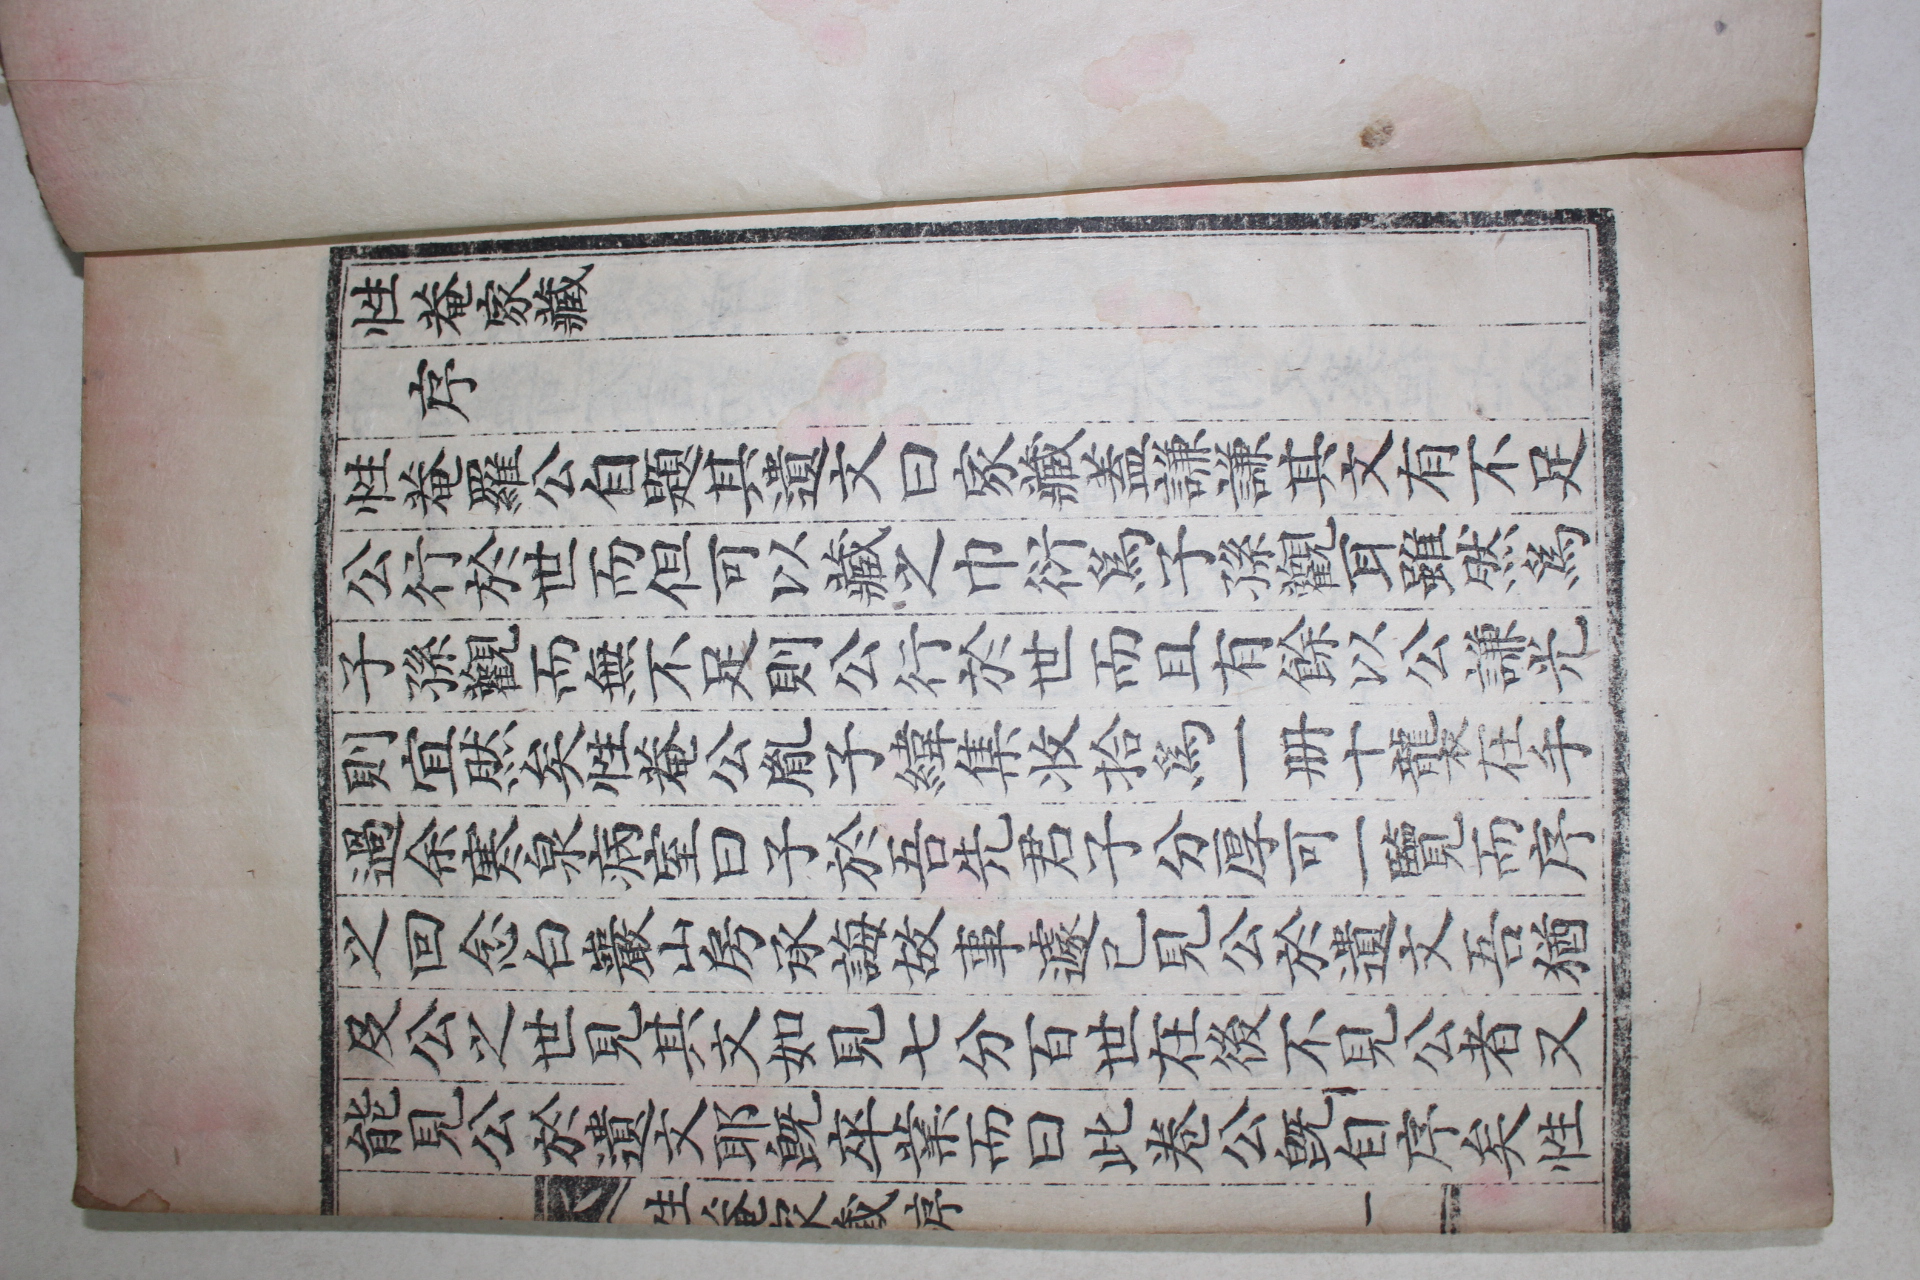 性菴家藏
序
性菴羅公自題其遺文曰家藏盖謙謙其文有不足
公行於世而但可以藏之巾衍爲子孫觀耳雖然爲
子孫觀而無不足則公行於世而且有餘以公謙光
則宜然矣性菴公胤子緯集收拾爲一冊十襲在手
過余寒泉病室曰子於吾先君子分厚可一覽而序
之回念白巖山房承誨故事邃已見公於遺文吾猶
及公之世見其文如見七分百世在後不見公者又
能見公於遺文耶旣卒業而曰此卷公旣自序矣性
性菴家藏序 一